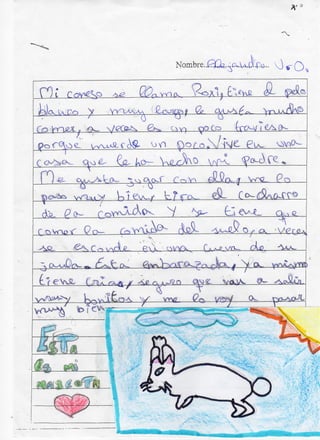 Nombre. Alejandra. V. O.
Mi conejo se llama Roxi, tiene el pelo
blanco y muy largo, le gusta mucho
comer, a veces es un poco traviesa
porque muerde un poco. Vive en una
casa que le ha hecho mi padre.
Me gusta jugar con ella, me lo
paso muy bien, tira el cacharro
de la comida y se tiene que
comer la comida del suelo, a veces
se esconde en una cueva de su
jaula. Esta embarazada, ya mismo
tiene crias, seguro que van a salir
muy bonitos y me lo voy a pasar
muy bien
ESTA
es mi
MASCOTA